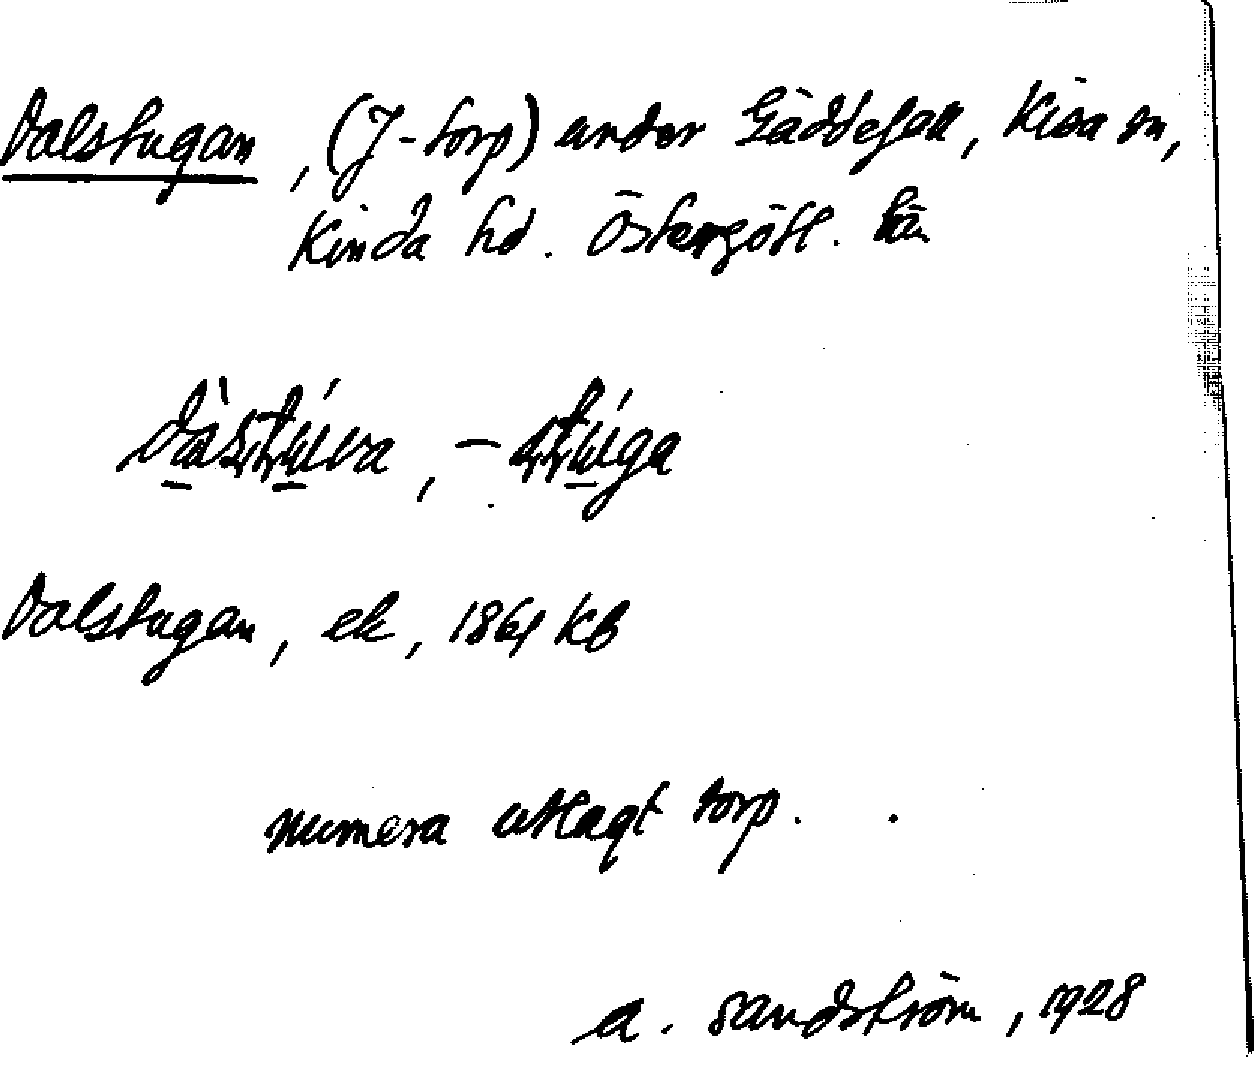 Dalstugan, (J-torp) under Gäddefall, Kisa sn,
Kinda hd. Östergötl. län
Dalstugan, ek, 1861 KB
numera utlagt torp.
A. Sandström, 1928